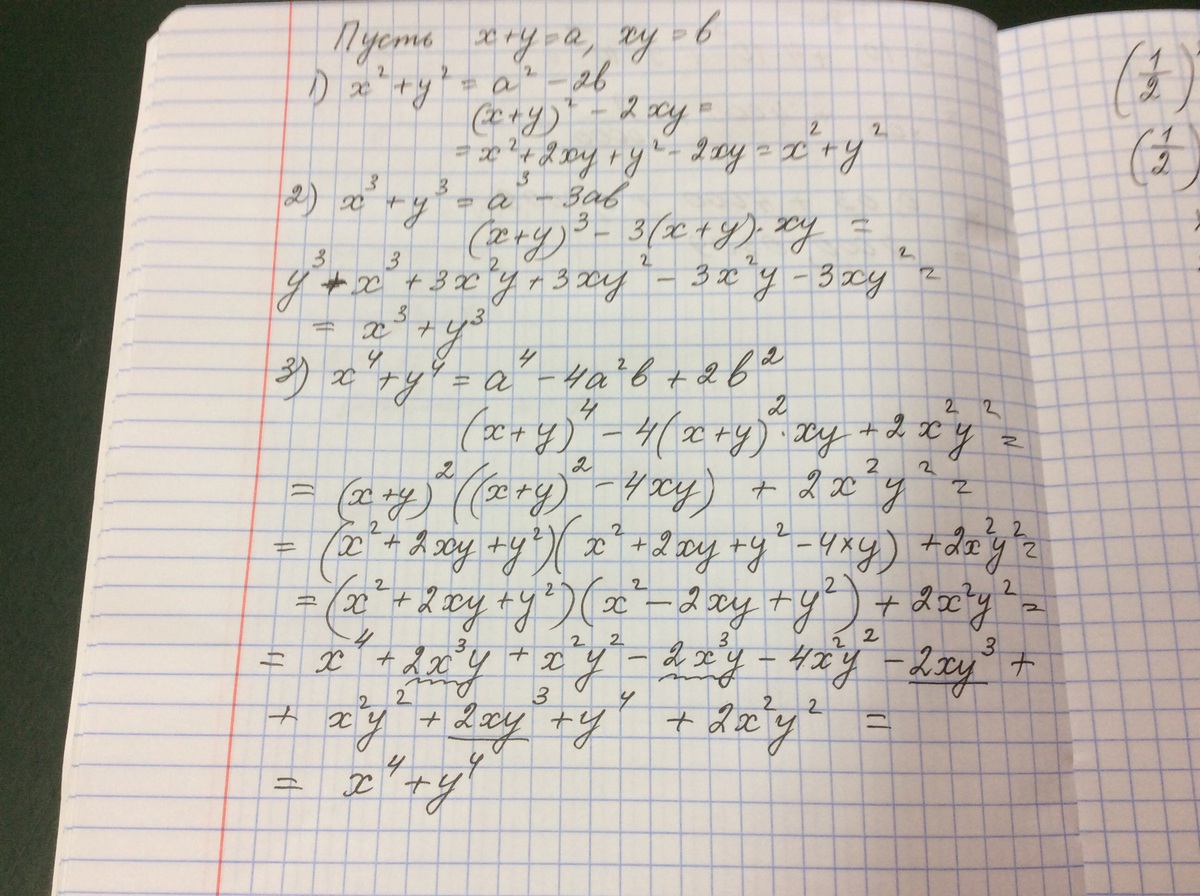 Пусть x+y=a, xy=b
1) x²+y² = a² − 2b
(x+y)² − 2xy =
= x²+2xy+y²−2xy = x²+y²
2) x³+y³ = a³ − 3ab
(x+y)³ − 3(x+y)·xy =
y³ + x³ + 3x²y + 3xy² − 3x²y − 3xy² =
= x³+y³
3) x⁴+y⁴ = a⁴ − 4a²b + 2b²
(x+y)⁴ − 4(x+y)²·xy + 2x²y² =
= (x+y)²((x+y)² − 4xy) + 2x²y² =
= (x²+2xy+y²)(x²+2xy+y²−4xy) + 2x²y² =
= (x²+2xy+y²)(x²−2xy+y²) + 2x²y² =
= x⁴ + 2x³y + x²y² − 2x³y − 4x²y² − 2xy³ +
+ x²y² + 2xy³ + y⁴ + 2x²y² =
= x⁴+y⁴
(1/2)
(1/2)